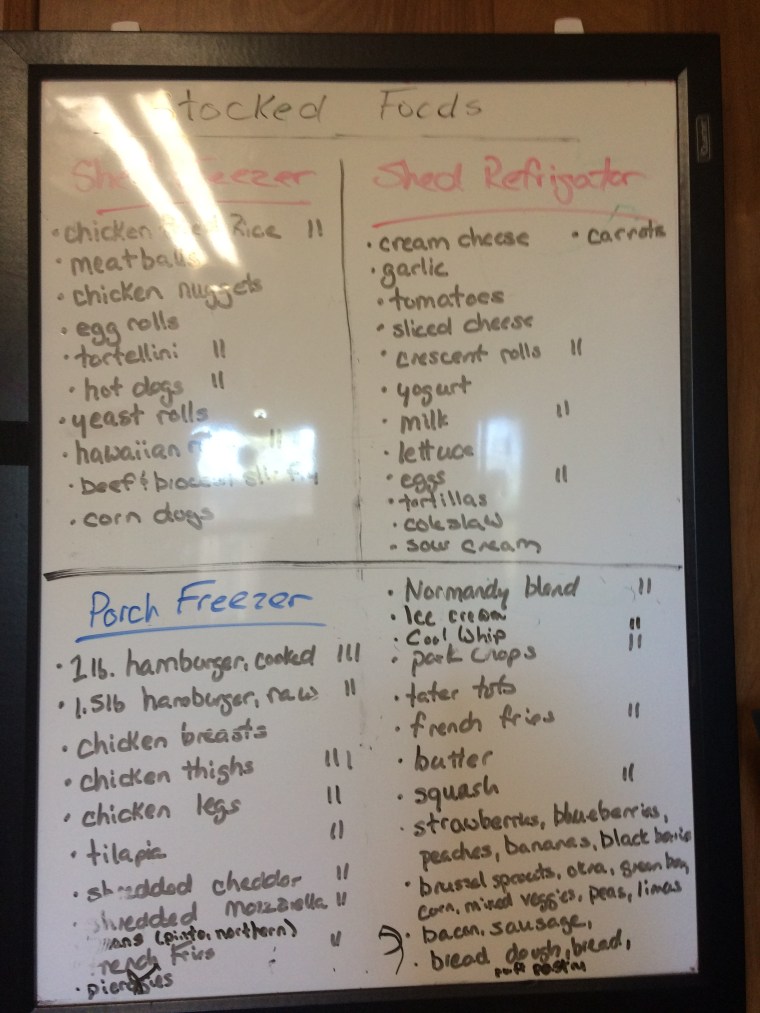 tocked Foods
Shed Freezer
• chicken Fried Rice 11
• meatballs
• chicken nuggets
• egg rolls
• tortellini 11
• hot dogs 11
• yeast rolls
• hawaiian 11
• beef & broccoli stir fry
• corn dogs
Shed Refrigator
• cream cheese • carrots
• garlic
• tomatoes
• sliced cheese
• crescent rolls 11
• yogurt
• milk 11
• lettuce
• eggs 11
• tortillas
• coleslaw
• sour cream
Porch Freezer
• 1 lb. hamburger, cooked 111
• 1.5lb hamburger, raw 11
• chicken breasts
• chicken thighs 111
• chicken legs 11
• tilapia 11
• shredded cheddar 11
shredded mozzarella 11
(pinto, northern) 11
french fries
• pierogies
• Normandy blend 11
• Ice cream
• Cool Whip 11
• pork chops 11
• tater tots
• french fries 11
• butter
• squash 11
• strawberries, blueberries,
peaches, bananas, blackberries
• brussel sprouts, okra, green bean,
corn, mixed veggies, peas, limas
• bacon, sausage,
• bread dough, bread,
puff pastry
Quartet